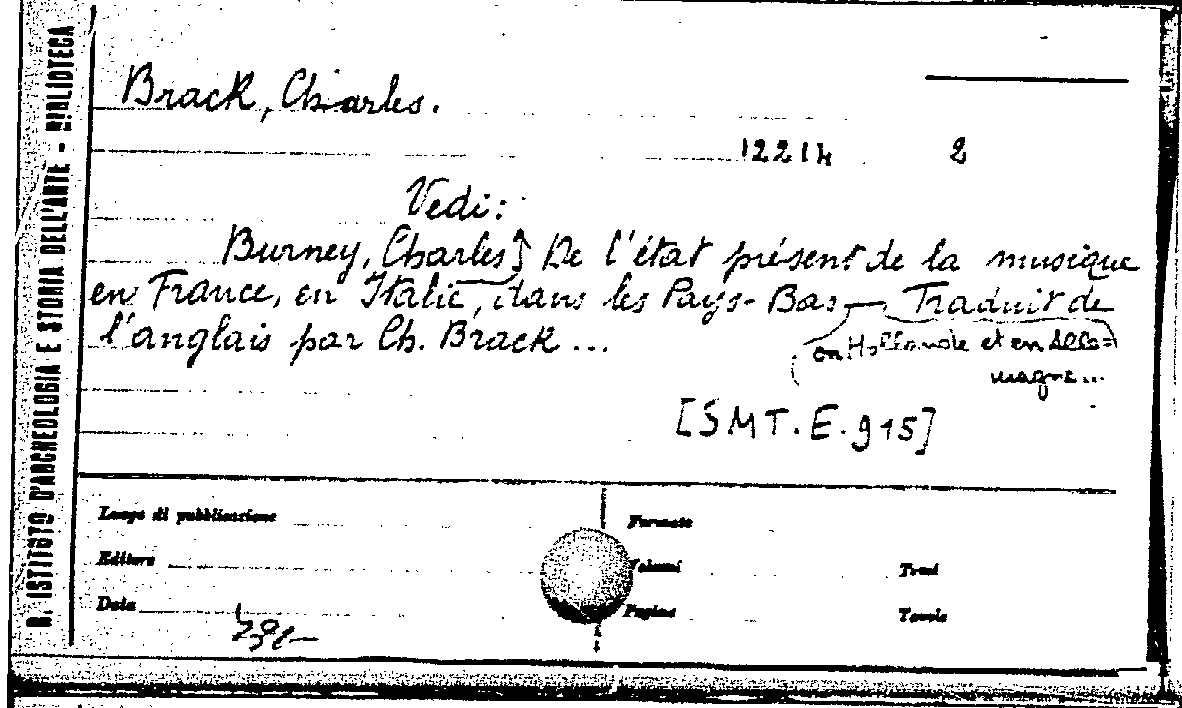 R. ISTITUTO D'ARCHEOLOGIA E STORIA DELL'ARTE - BIBLIOTECA
Brack, Charles.
12214 2
Vedi:
Burney, Charles] De l'état présent de la musique
en France, en Italie, dans les Pays-Bas — Traduit de
l'anglais par Ch. Brack ...
en Hollande et en Alle=
magne...
[SMT.E.915]
Luogo di pubblicazione
Formato
Editore
Volumi
Tomi
Data
Pagine
Tavole